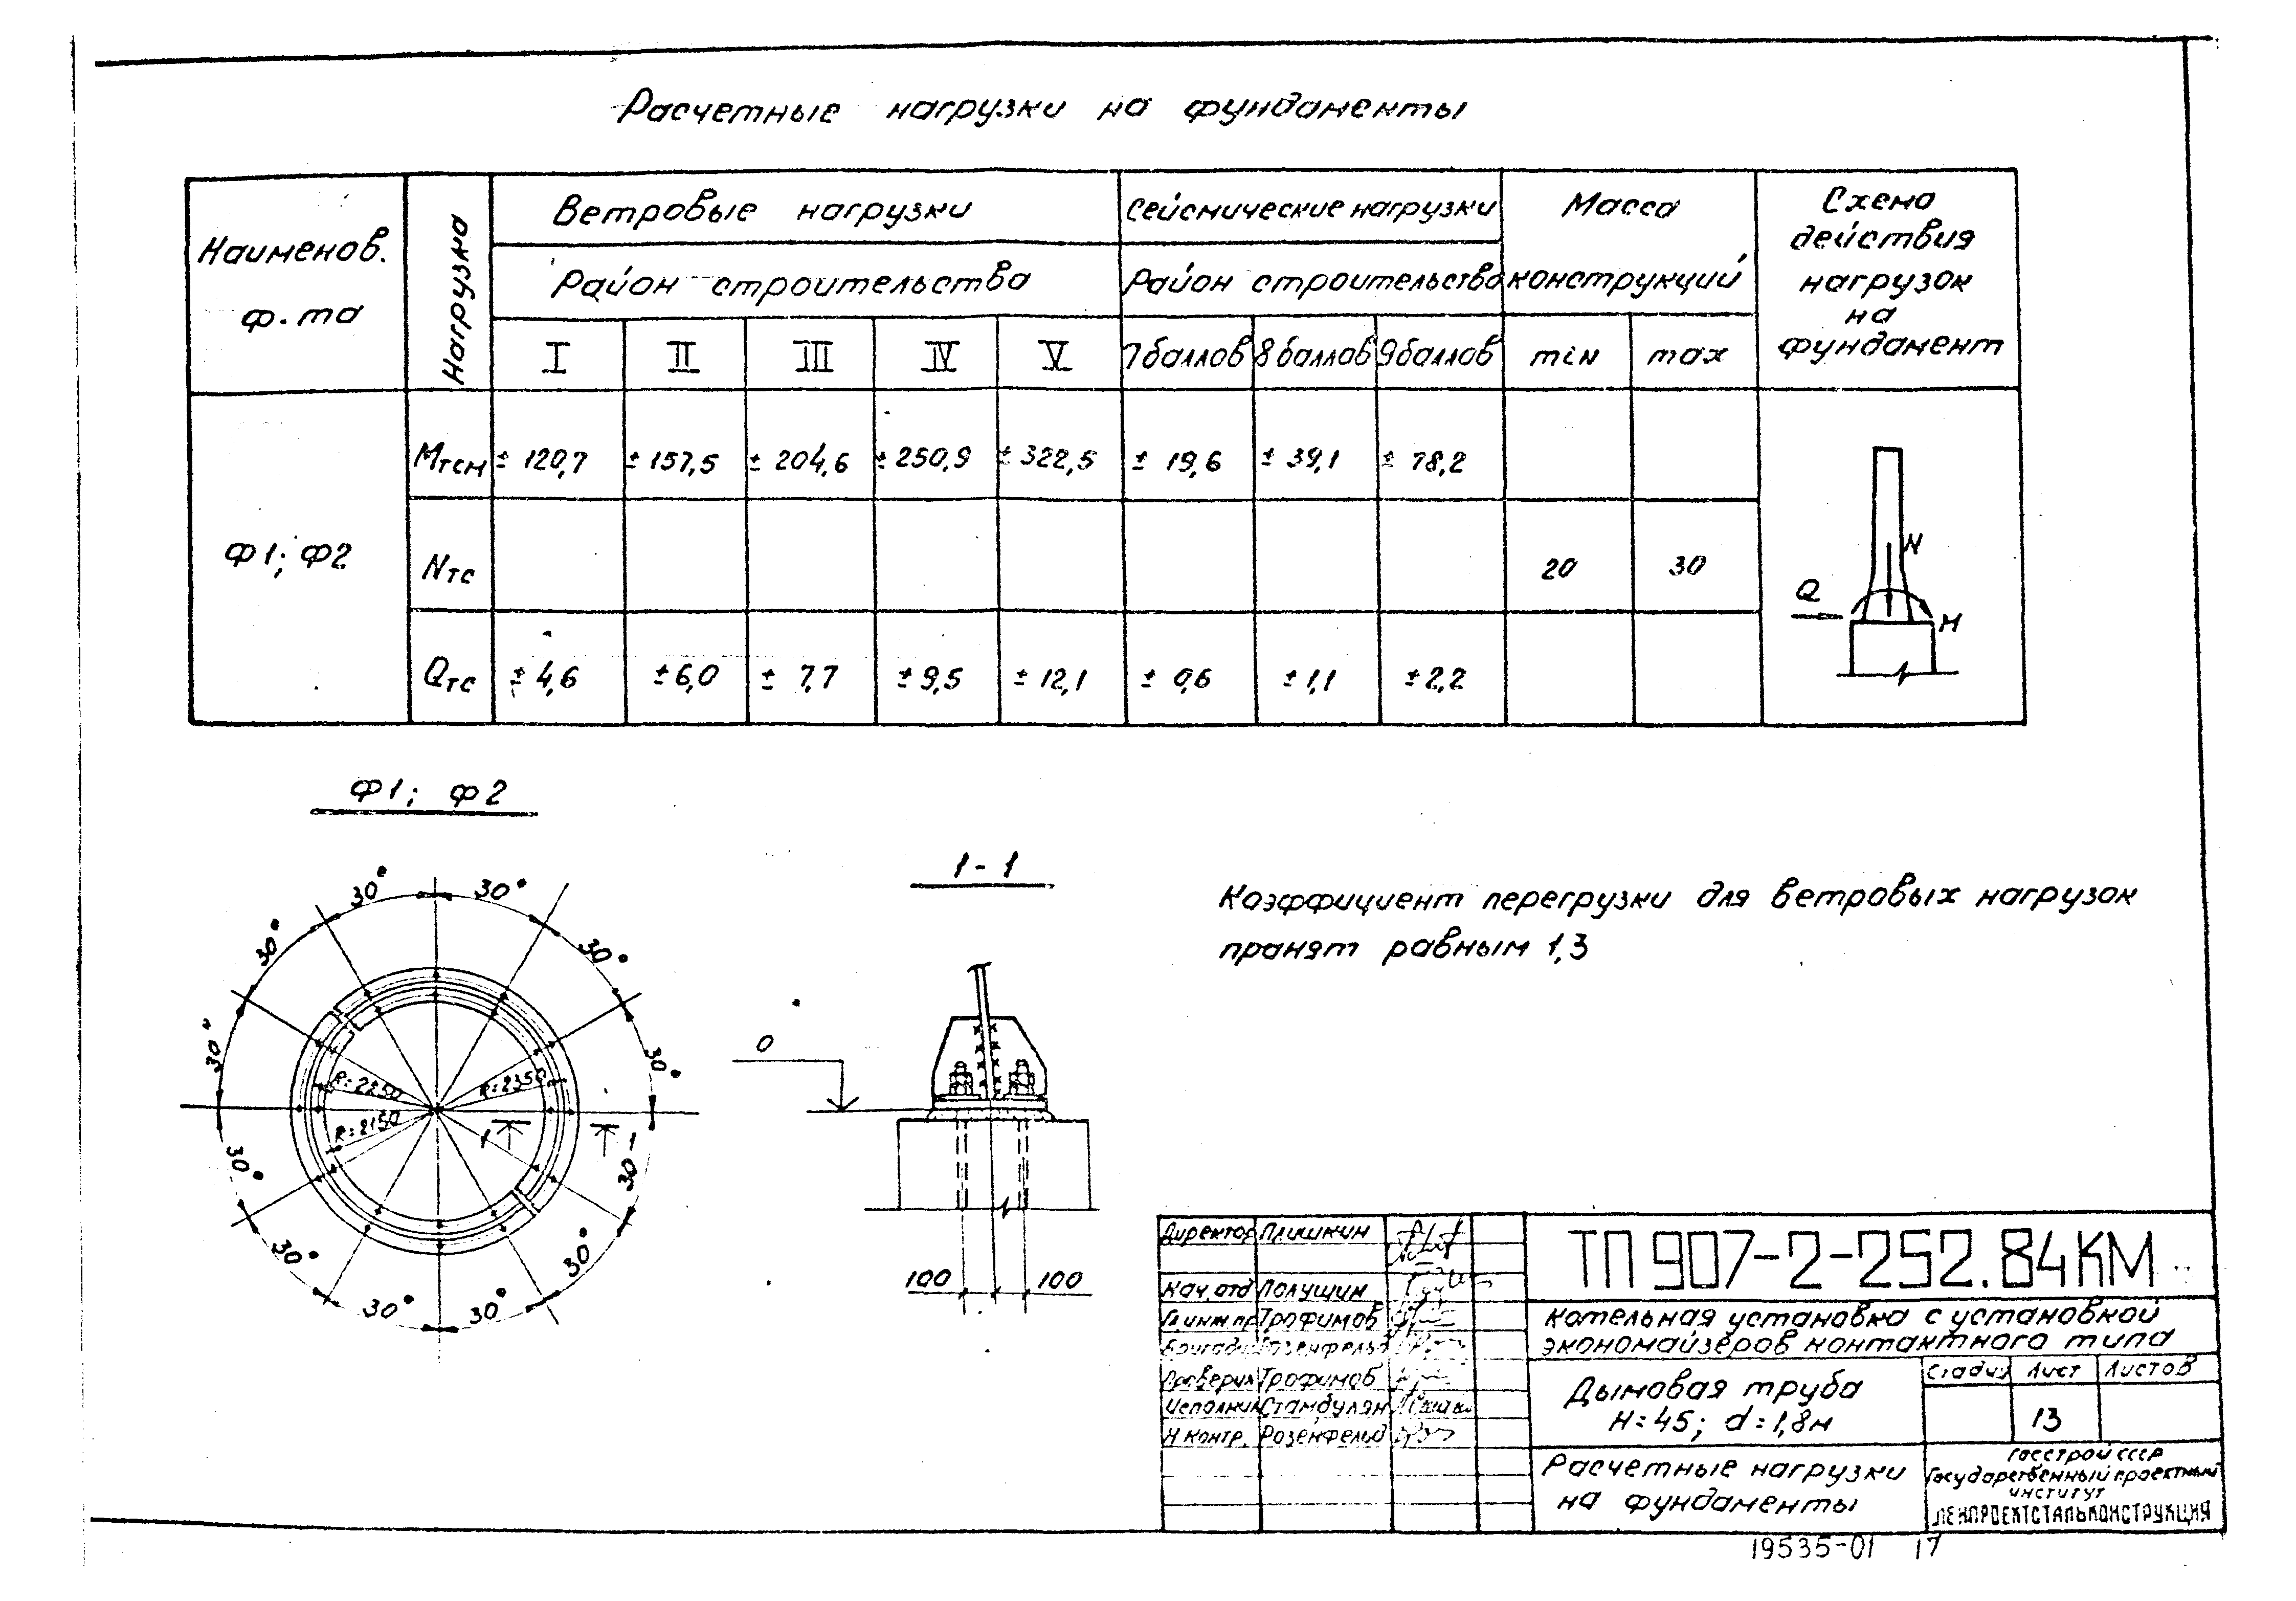 Расчетные нагрузки на фундаменты
Наименов.
ф-та
Нагрузка
Ветровые нагрузки
Район строительства
I II III IV V
Сейсмические нагрузки
Район строительства
7 баллов 8 баллов 9 баллов
Масса
конструкций
min max
Схема
действия
нагрузок
на
фундамент
Ф1; Ф2
Мтсм ± 120,7 ± 157,5 ± 204,6 ± 250,9 ± 322,5 ± 19,6 ± 39,1 ± 78,2
Nтс 20 30
Qтс ± 4,6 ± 6,0 ± 7,7 ± 9,5 ± 12,1 ± 0,6 ± 1,1 ± 2,2
N
Q
М
Ф1; Ф2
30° 30°
30° 30°
30° 30°
R=2250 R=2350
R=2150
1
30° 30
30° 30°
30° 30°
1-1
0
100 100
Коэффициент перегрузки для ветровых нагрузок
принят равным 1,3
Директор Плишкин
Нач. отд Полушин
Гл инж пр Трофимов
Бригад Розенфельд
Проверил Трофимов
Исполнил Стамбулян
Н контр. Розенфельд
ТП 907-2-252.84 КМ
Котельная установка с установкой
экономайзеров контактного типа
Дымовая труба
Н=45; d=1,8м
Стадия Лист Листов
13
Расчетные нагрузки
на фундаменты
Госстрой СССР
Государственный проектный
институт
ЛЕНПРОЕКТСТАЛЬКОНСТРУКЦИЯ
19535-01 17